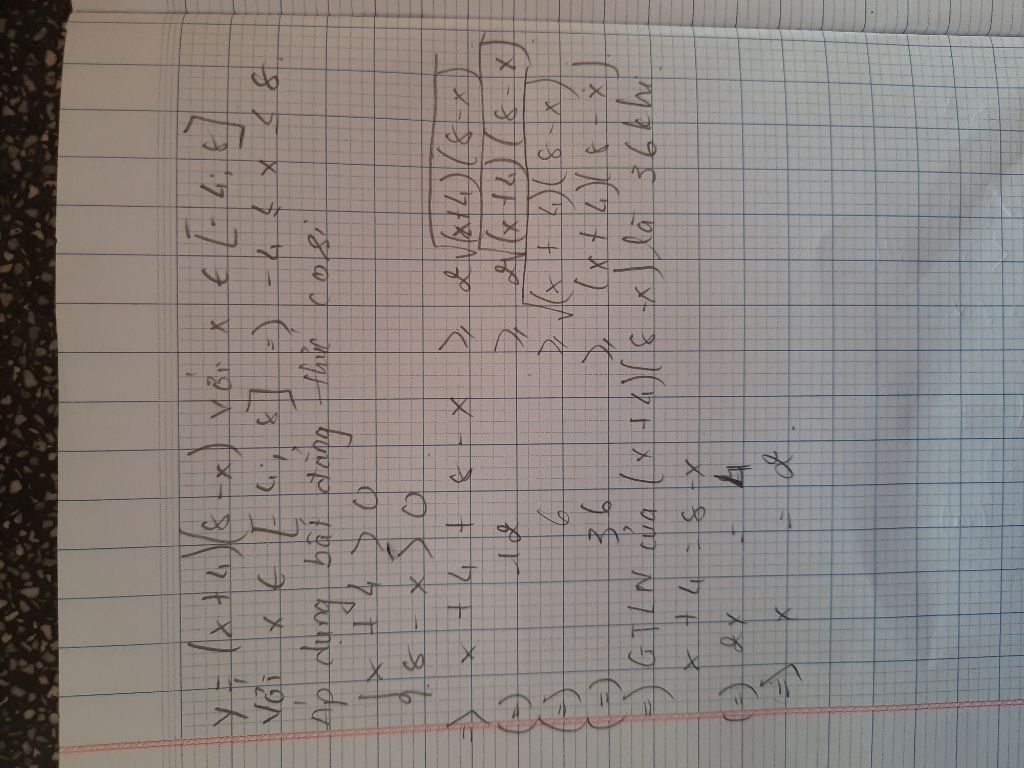 y = (x+4)(8-x) với x ∈ [-4;8]
Với x ∈ [-4;8] => -4 ≤ x ≤ 8.
áp dụng bất đẳng thức cosi
x + 4 ≥ 0
8 - x ≥ 0
=> x + 4 + 8 - x ≥ 2√(x+4)(8-x)
(=) 12 ≥ 2√(x+4)(8-x)
(=) 6 ≥ √(x+4)(8-x)
(=) 36 ≥ (x+4)(8-x)
=) GTLN của (x+4)(8-x) là 36 khi
x + 4 = 8 - x
(=) 2x = 4
=> x = 2.